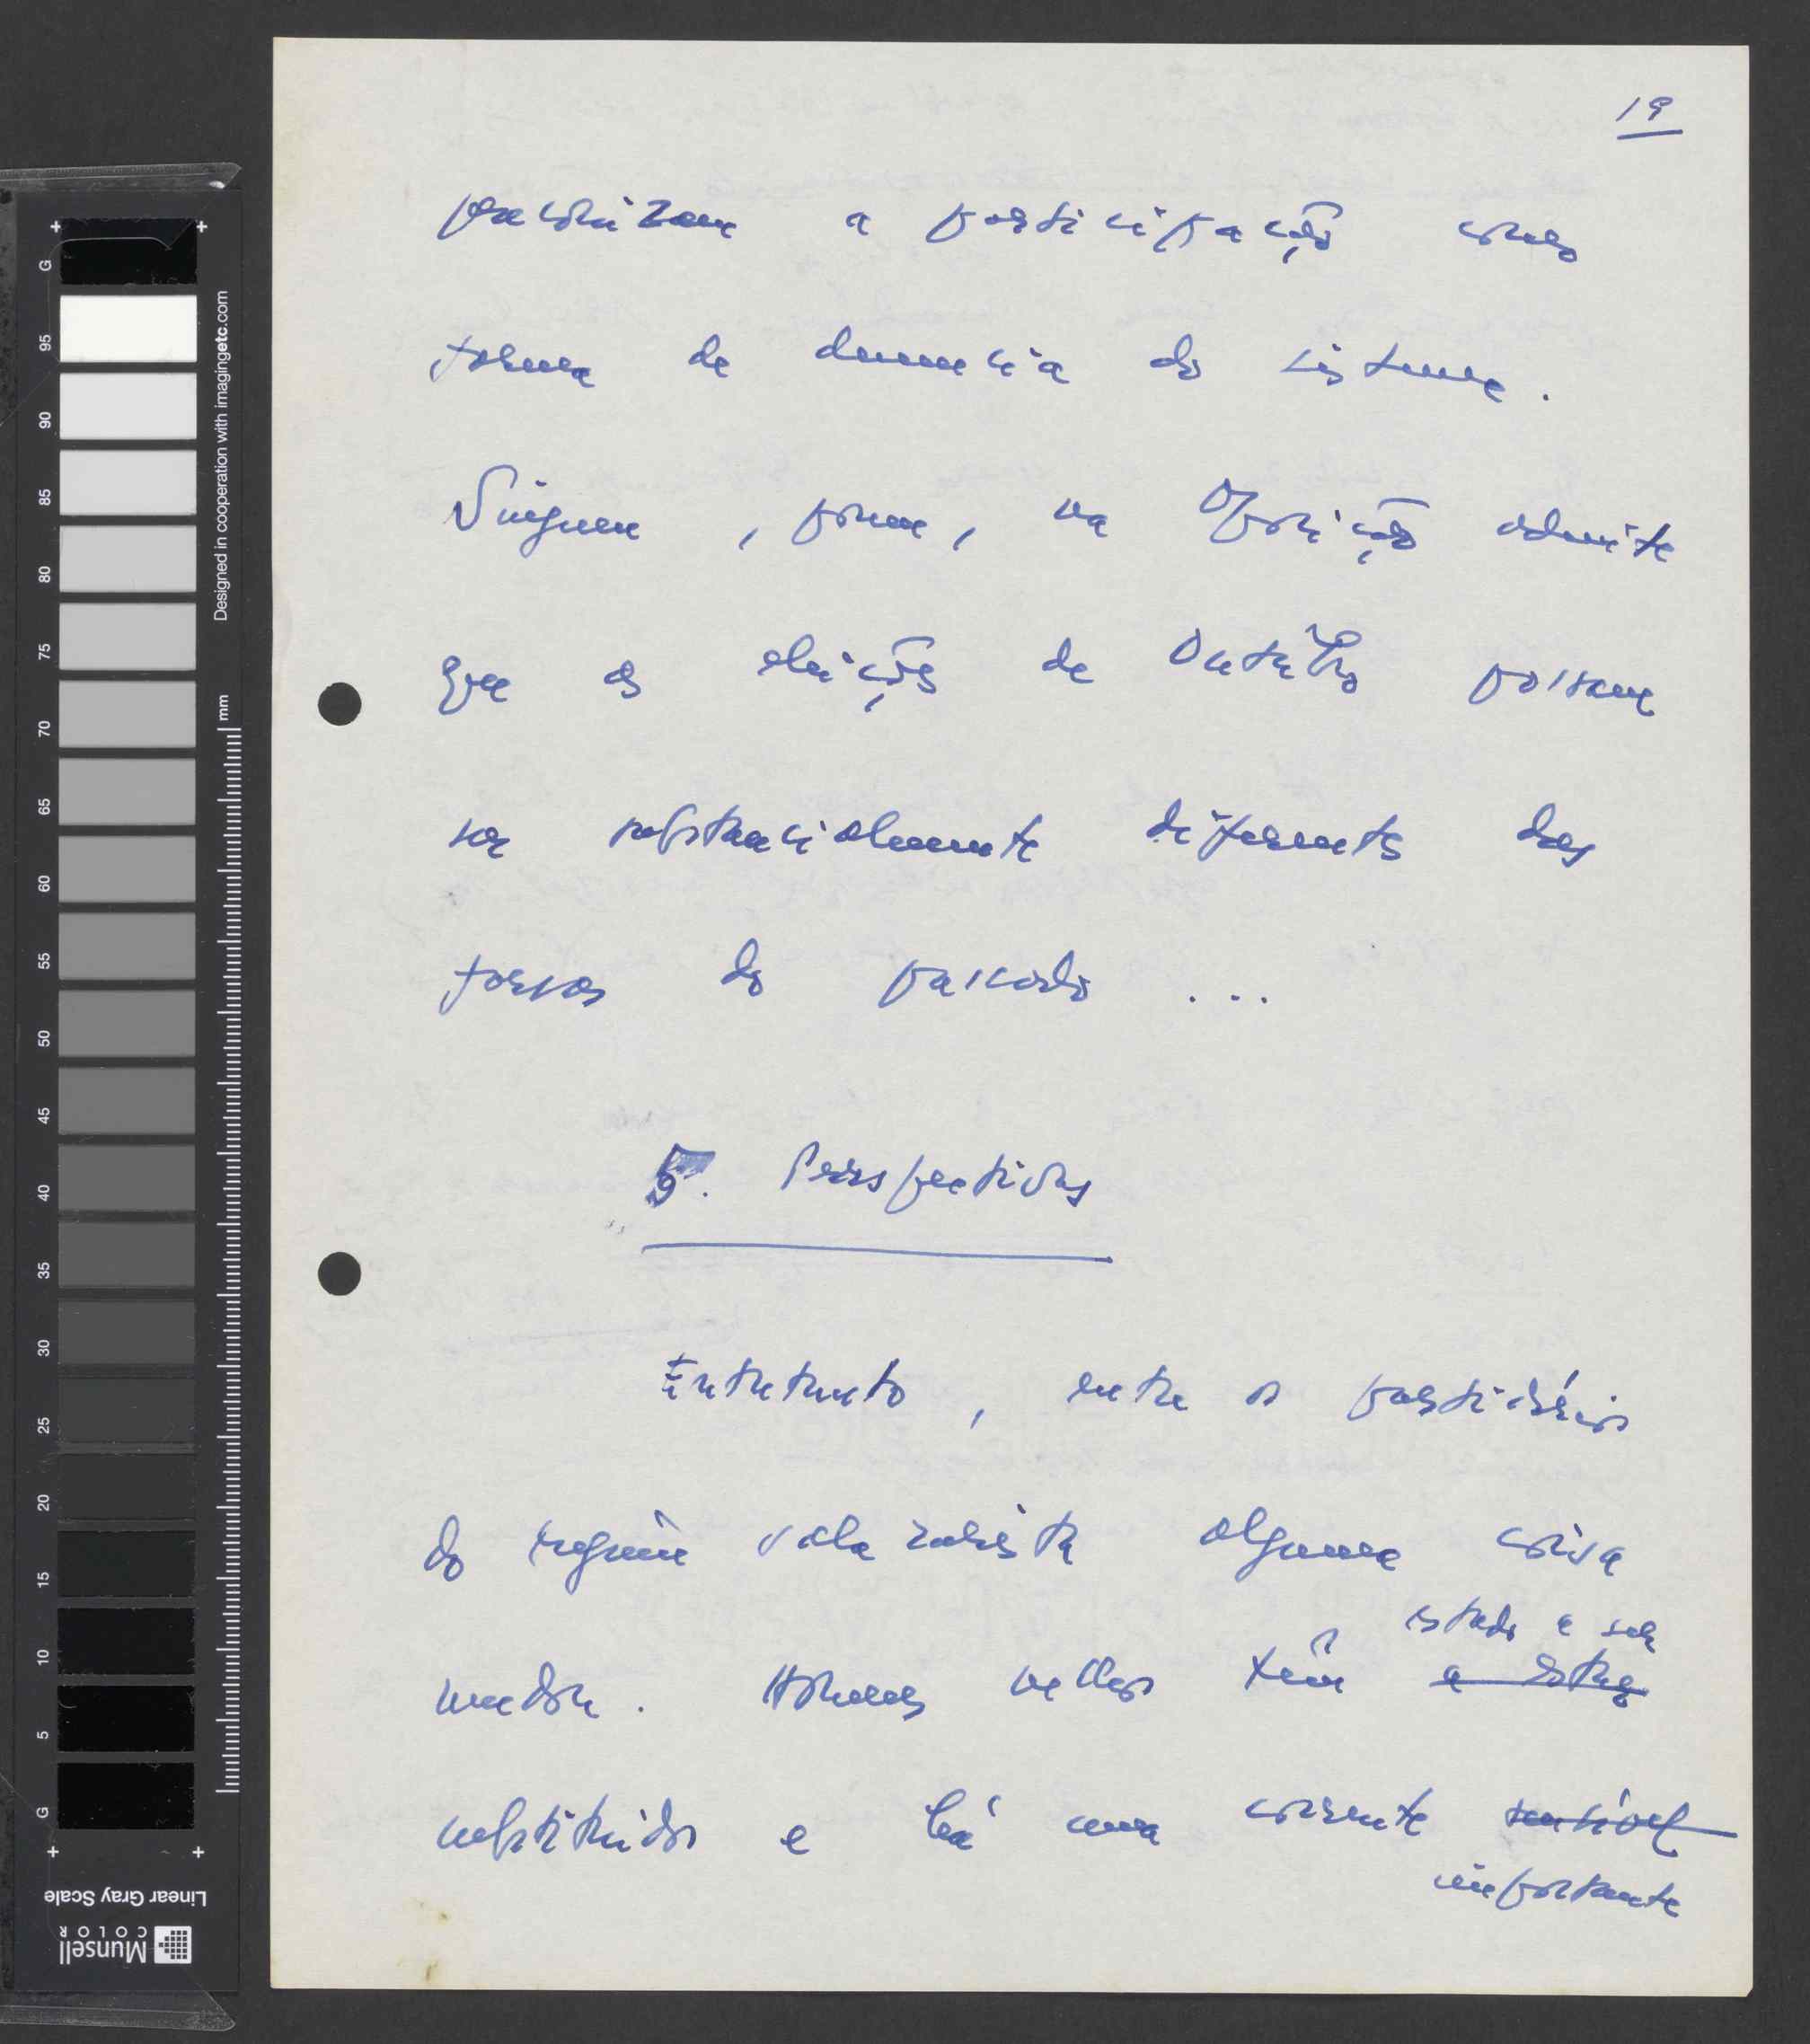 19
preconizam a participação como
forma de denuncia do sistema.
Ninguem, porem, na Oposição admite
que as eleições de Outubro possam
ser substancialmente diferentes das
farsas do passado ...
5. Perspectivas
Entretanto, entre os partidários
do regime salazarista alguma coisa
mudou. Homens velhos têm estado a ser
a estar
substituidos e há uma corrente sensível
importante
Designed in cooperation with imagingetc.com
mm
G 95 90 85 80 75 70 65 60 55 50 45 40 35 30 25 20 15 10 5 G
Linear Gray Scale
Munsell
COLOR